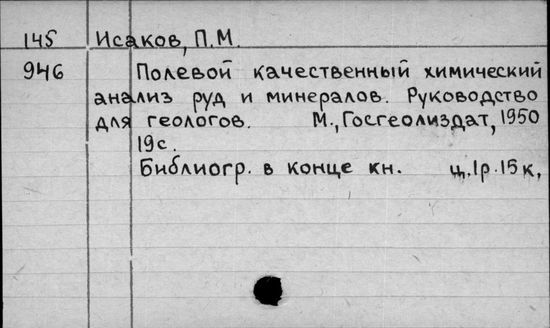 145 Исаков, П.М.
946 Полевой качественный химический
анализ руд и минералов. Руководство
для геологов. М., Госгеолиздат, 1950
19с.
Библиогр. в конце кн. ц. 1р. 15к,